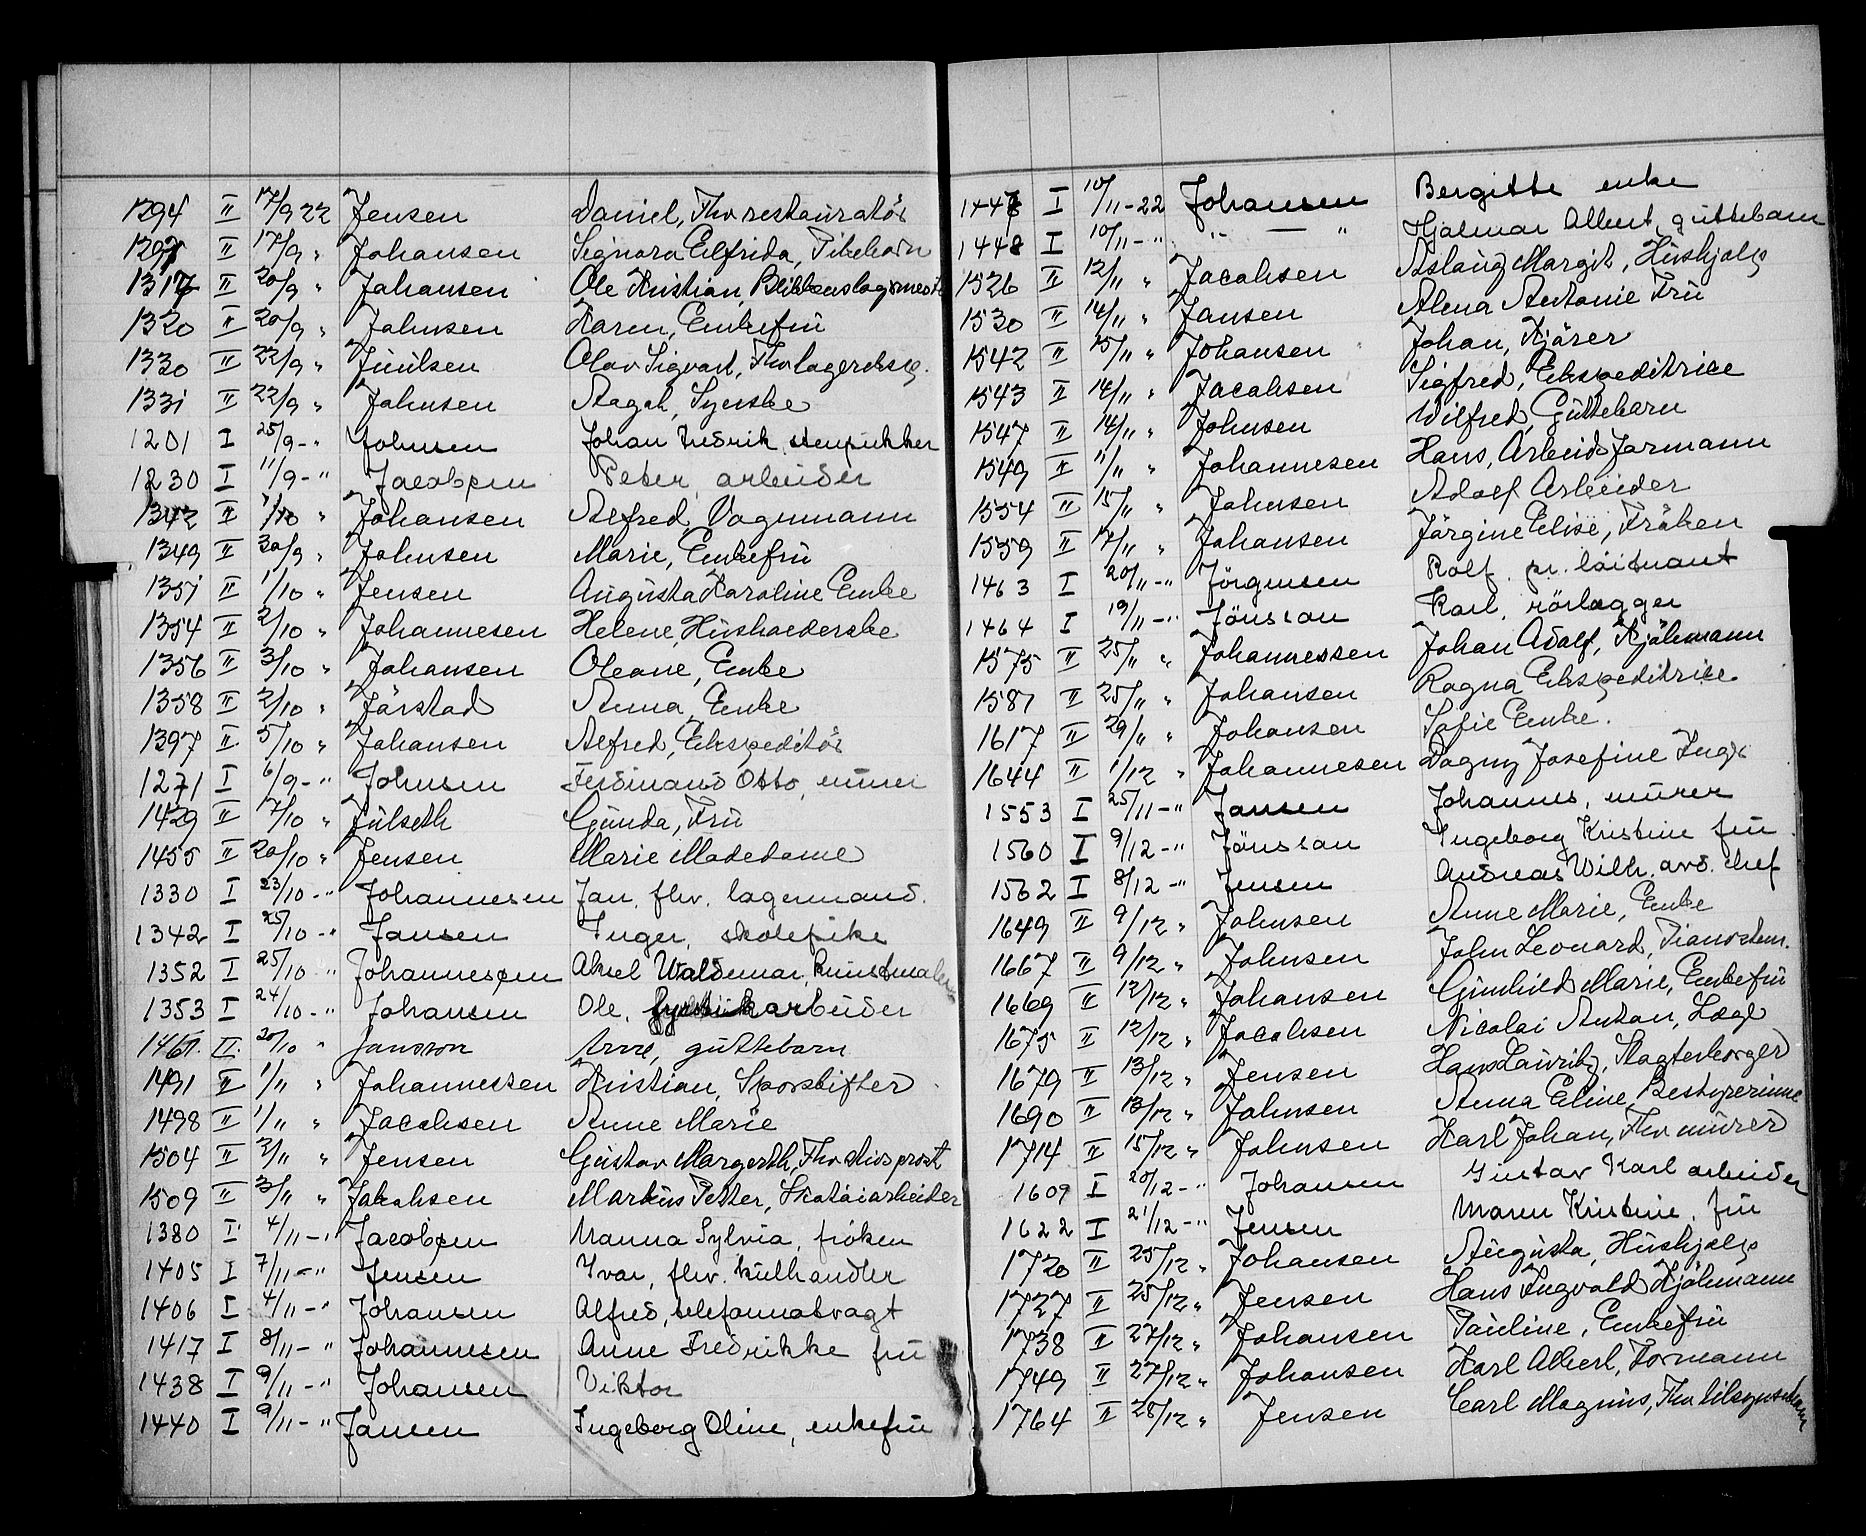 1294 II 17/9 22 Jensen Daniel, Fhv restauratör
II 17/9 " Johansen Signora Elfrida, Pikebarn
1317 II 20/9 " Johansen Ole Kristian, Blikkenslagermest
1320 II 20/9 " Johnsen Karen, Enkefrü
1330 II 22/9 " Juulsen Olav Sigvart, Fhv lagereksp.
1331 II 22/9 " Johnsen Aagot, Syerske
1201 I 25/9 - " Johnsen Johan Fredrik, stenpukker
1230 I 11/9 - " Jacobsen Peter, arbeider
1342 II 1/10 " Johansen Alfred, Vognmann
1349 II 30/9 " Johnsen Marie, Enkefrü
1351 II 1/10 " Jensen Augusta Karoline Enke
1354 II 2/10 " Johannesen Helene, Husholderske
1356 II 3/10 " Johansen Oleane, Enke
1358 II 2/10 " Jörstad Anna, Enke
1397 II 5/10 " Johansen Alfred, Ekspeditör
1271 I 6/9 - " Johnsen Ferdinand Otto, murer
1429 II 17/10 " Julseth Gunda, Frü
1455 II 20/10 " Jensen Marie Madedame
1330 I 23/10 - " Johannesen Jan, fhv. lagermand.
1342 I 25/10 - " Jansen Inger, skolepike
1352 I 25/10 - " Johannesen Aksel Waldemar, kunstmaler
1353 I 24/10 - " Johansen Ole, arbeider
1461. II. 20/10 " Jansson Arne, guttebarn
1491 II 1/11 " Johannessen Kristian, Sporskifter
1498 II 1/11 " Jacobsen Anne Marie
1504 II 2/11 " Jensen Gustav Margerth, Fhv
1509 II 3/11 " Jakobsen Markus Petter, Skotöiarbeider
1380 I 4/11 - " Jacobsen Nanna Sylvia, fröken
1405 I 7/11 - " Jensen Ivar, fhv. kulhandler
1406 I 4/11 - " Johansen Alfred, telefonnatvagt
1417 I 8/11 - " Johannesen Anne Fredrikke frü
1438 I 9/11 - " Johansen Viktor
1440 I 9/11 - " Jansen Ingeborg Oline, enkefrü
1447 I 10/11 - 22 Johansen Bergitte enke
1448 I 10/11 - " " — " Hjalmar Albert, guttebarn
1526 II 12/11 " Jacobsen Aslaug Margit, Hushjelp
1530 II 14/11 " Jansen Alma Antonie Frü
1542 II 15/11 " Johansen Johan, Kjörer
1543 II 14/11 " Jacobsen Sigfred, Ekspeditrice
1547 II 14/11 " Johnsen Wilfred, Guttebarn
1549 II 11/11 " Johannesen Hans, Arbeidsformann
1554 II 15/11 " Johnsen Adolf Arbeider
1559 II 17/11 " Johansen Jörgine Elise, Fröken
1463 I 20/11 - " Jörgensen Rolf, pr. löitnant
1464 I 19/11 - " Jönsson Karl, rörlægger
1575 II 25/11 " Johannessen Johan Adolf, Kjöhmann
1587 II 25/11 " Johansen Ragna Ekspeditrice
1617 II 29/11 " Johansen Sofie Enke.
1644 II 1/12 " Johannesen Dagny Josefine
1553 I 25/11 - " Jansen Johannes, murer
1560 I 9/12 - " Jönsson Ingeborg Kristine frü
1562 I 8/12 - " Jensen Andreas Wilh. avd. chef
1649 II 9/12 " Johnsen Anne Marie, Enke
1667 II 9/12 " Johnsen John Leonard, Pianostem.
1669 II 12/12 " Johansen Gunhild Marie, Enkefrü
1675 II 12/12 " Jacobsen Nicolai Anton, Læge
1679 II 13/12 " Jensen Hans Lauritz, Slagterborger
1690 II 13/12 " Johnsen Anna Eline, Bestyrerinne
1714 II 15/12 " Johnsen Karl Johan, Fhv murer
1609 I 20/12 - " Johansen Gustav Karl arbeider
1622 I 21/12 - " Jensen Maren Kristine, frü
1720 II 25/12 " Johansen Augusta, Hushjelp
1727 II 25/12 " Jensen Hans Ingvald Kjöhmann
1738 II 27/12 " Johansen Pauline, Enkefrü
1749 II 27/12 " Johansen Karl Albert, Formann
1764 II 28/12 " Jensen Carl Magnus, Fhv